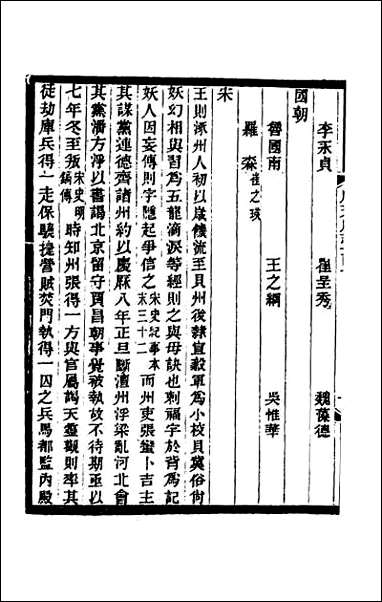 李永貞　崔呈秀　魏藻德
國朝
曹國南　王之綱　吳惟華
羅森　崔之瑛
宋
王則涿州人初以歲饑流至貝州後隸宣毅軍為小校貝冀俗尙
妖幻相與習為五龍滴淚等經則之與母訣也刺福字於背為記
妖人因妄傳則字隱起爭信之宋史紀事本末三十二而州吏張巒卜吉主
其謀黨連德齊諸州約以慶厤八年正旦斷澶州浮梁亂河北會
其黨潘方淨以書謁北京留守賈昌朝事覺被執故不待期亟以
七年冬至叛宋史明鎬傳時知州張得一方與官屬謁天慶觀則率其
徒劫庫兵得一走保驍捷營賊焚門執得一囚之兵馬都監內殿